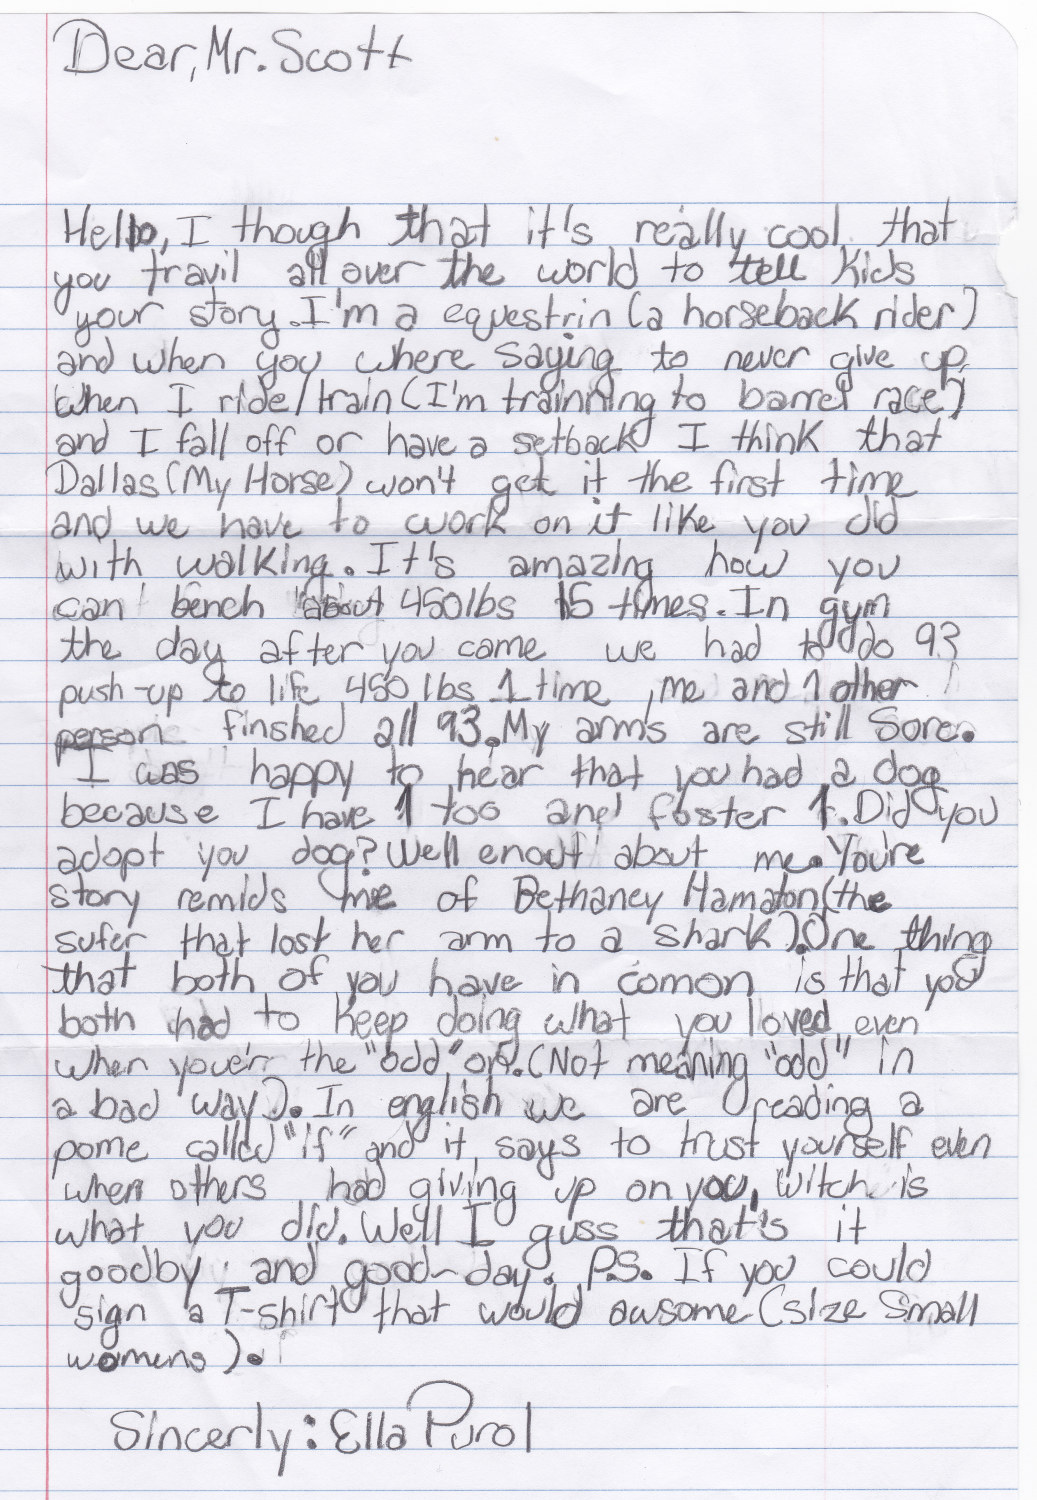 Dear, Mr. Scott
Hello, I though that it's really cool that
you travil all over the world to tell kids
your story. I'm a equestrin (a horseback rider)
and when you where saying to never give up,
when I ride/train (I'm trainning to barrel race)
and I fall off or have a setback I think that
Dallas (My Horse) won't get it the first time
and we have to work on it like you did
with walking. It's amazing how you
can bench about 450 lbs 15 times. In gym
the day after you came we had to do 93
push-up to life 450 lbs 1 time, me and 1 other
person finshed all 93. My arms are still Sore.
I was happy to hear that you had a dog
because I have 1 too and foster 1. Did you
adopt you dog? Well enouf about me. You're
story remids me of Bethaney Hamaton (the
sufer that lost her arm to a shark). One thing
that both of you have in comon is that you
both had to keep doing what you loved even
when you'err the "odd" on. (Not meaning "odd" in
a bad way). In english we are reading a
pome called "if" and it says to trust yourself even
when others had giving up on you, witch is
what you did. Well I guss that's it
goodby, and good-day. P.S. If you could
sign a T-shirt that would awsome (size Small
womens).
Sincerly: Ella Purol